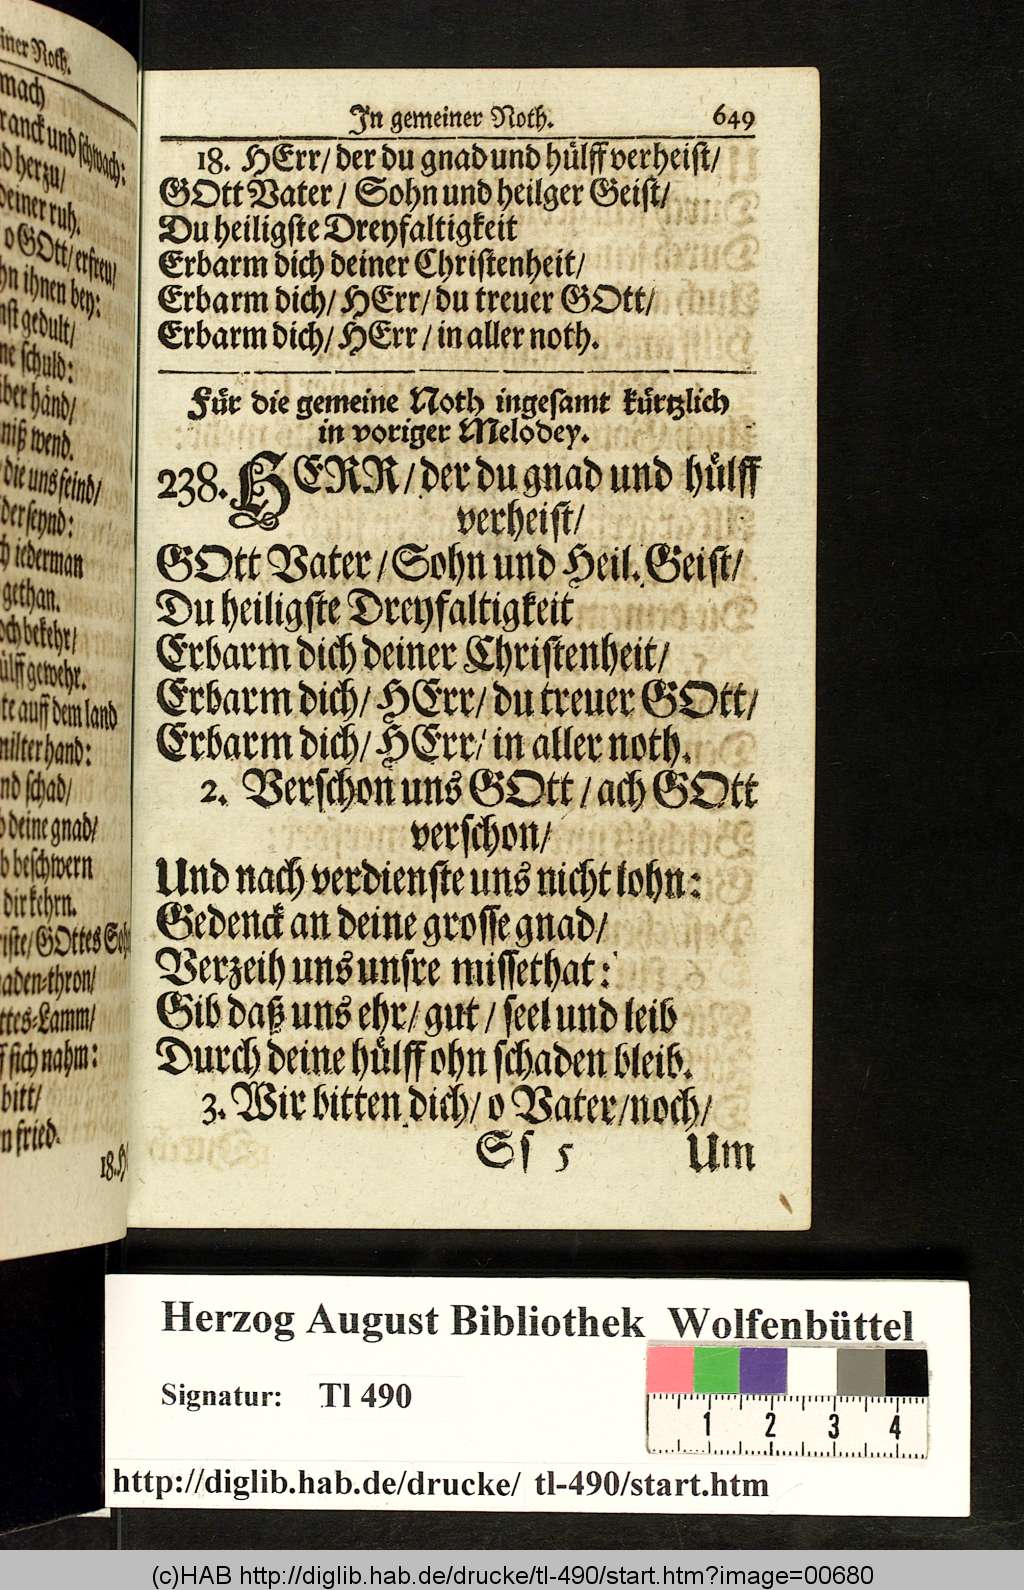 iner Noth.
mach
ranck und schwach:
d herzu/
deiner ruh.
o GOtt/ erfreu/
hn ihnen bey:
nst gedult/
ne schuld:
über händ/
niß wend.
die uns feind/
der seynd:
ch iederman
gethan.
och bekehr/
ülff gewehr.
te auff dem land
milter hand:
nd schad/
b deine gnad/
b beschwern
dir kehrn.
riste/ GOttes Soh
aden-thron/
ttes-Lamm/
ff sich nahm:
bitt/
n fried.
18. H
In gemeiner Noth. 649
18. HErr/ der du gnad und hülff verheist/
GOtt Vater/ Sohn und heilger Geist/
Du heiligste Dreyfaltigkeit
Erbarm dich deiner Christenheit/
Erbarm dich/ HErr/ du treuer GOtt/
Erbarm dich/ HErr/ in aller noth.
Für die gemeine Noth ingesamt kürtzlich
in voriger Melodey.
238. HERR/ der du gnad und hülff
verheist/
GOtt Vater/ Sohn und Heil. Geist/
Du heiligste Dreyfaltigkeit
Erbarm dich deiner Christenheit/
Erbarm dich/ HErr/ du treuer GOtt/
Erbarm dich/ HErr/ in aller noth.
2. Verschon uns GOtt/ ach GOtt
verschon/
Und nach verdienste uns nicht lohn:
Gedenck an deine grosse gnad/
Verzeih uns unsre missethat:
Gib daß uns ehr/ gut/ seel und leib
Durch deine hülff ohn schaden bleib.
3. Wir bitten dich/ o Vater/ noch/
Ss 5 Um
Herzog August Bibliothek Wolfenbüttel
Signatur: Tl 490
1 2 3 4
http://diglib.hab.de/drucke/ tl-490/start.htm
(c)HAB http://diglib.hab.de/drucke/tl-490/start.htm?image=00680